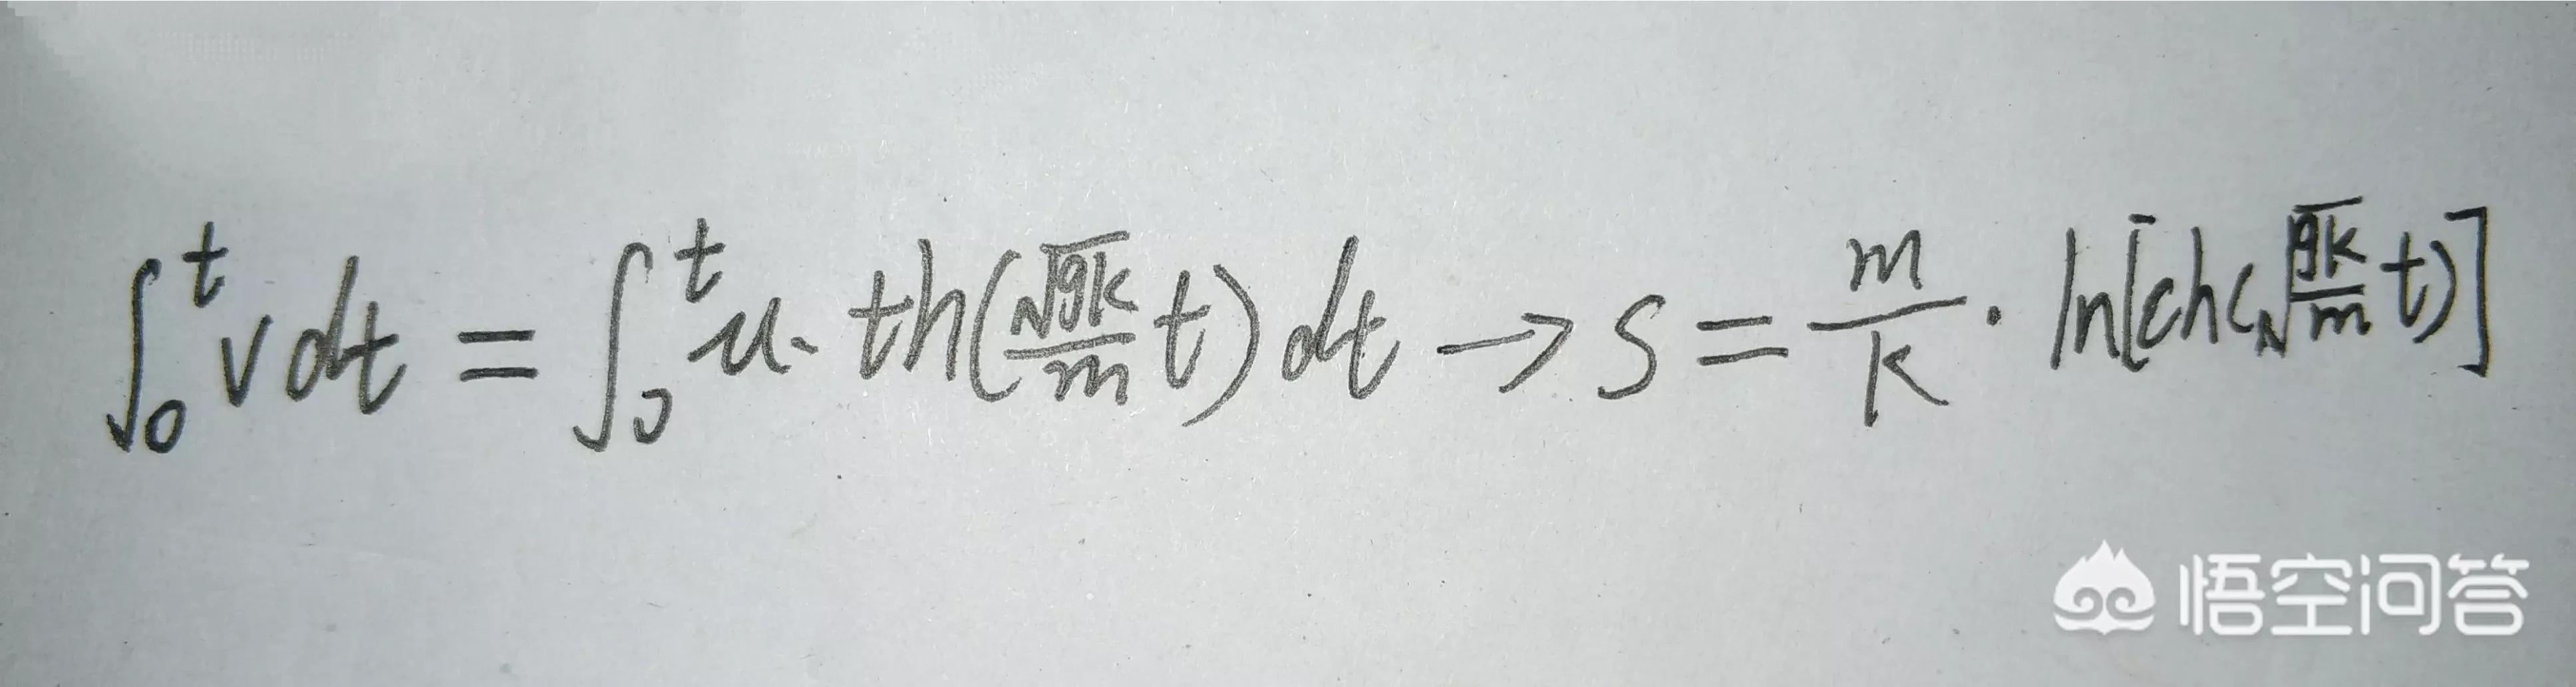 ∫₀ᵗ v dt = ∫₀ᵗ u · th(√gk/m t) dt → s = m/k · ln[ch(√(gk/m) t)]
悟空问答